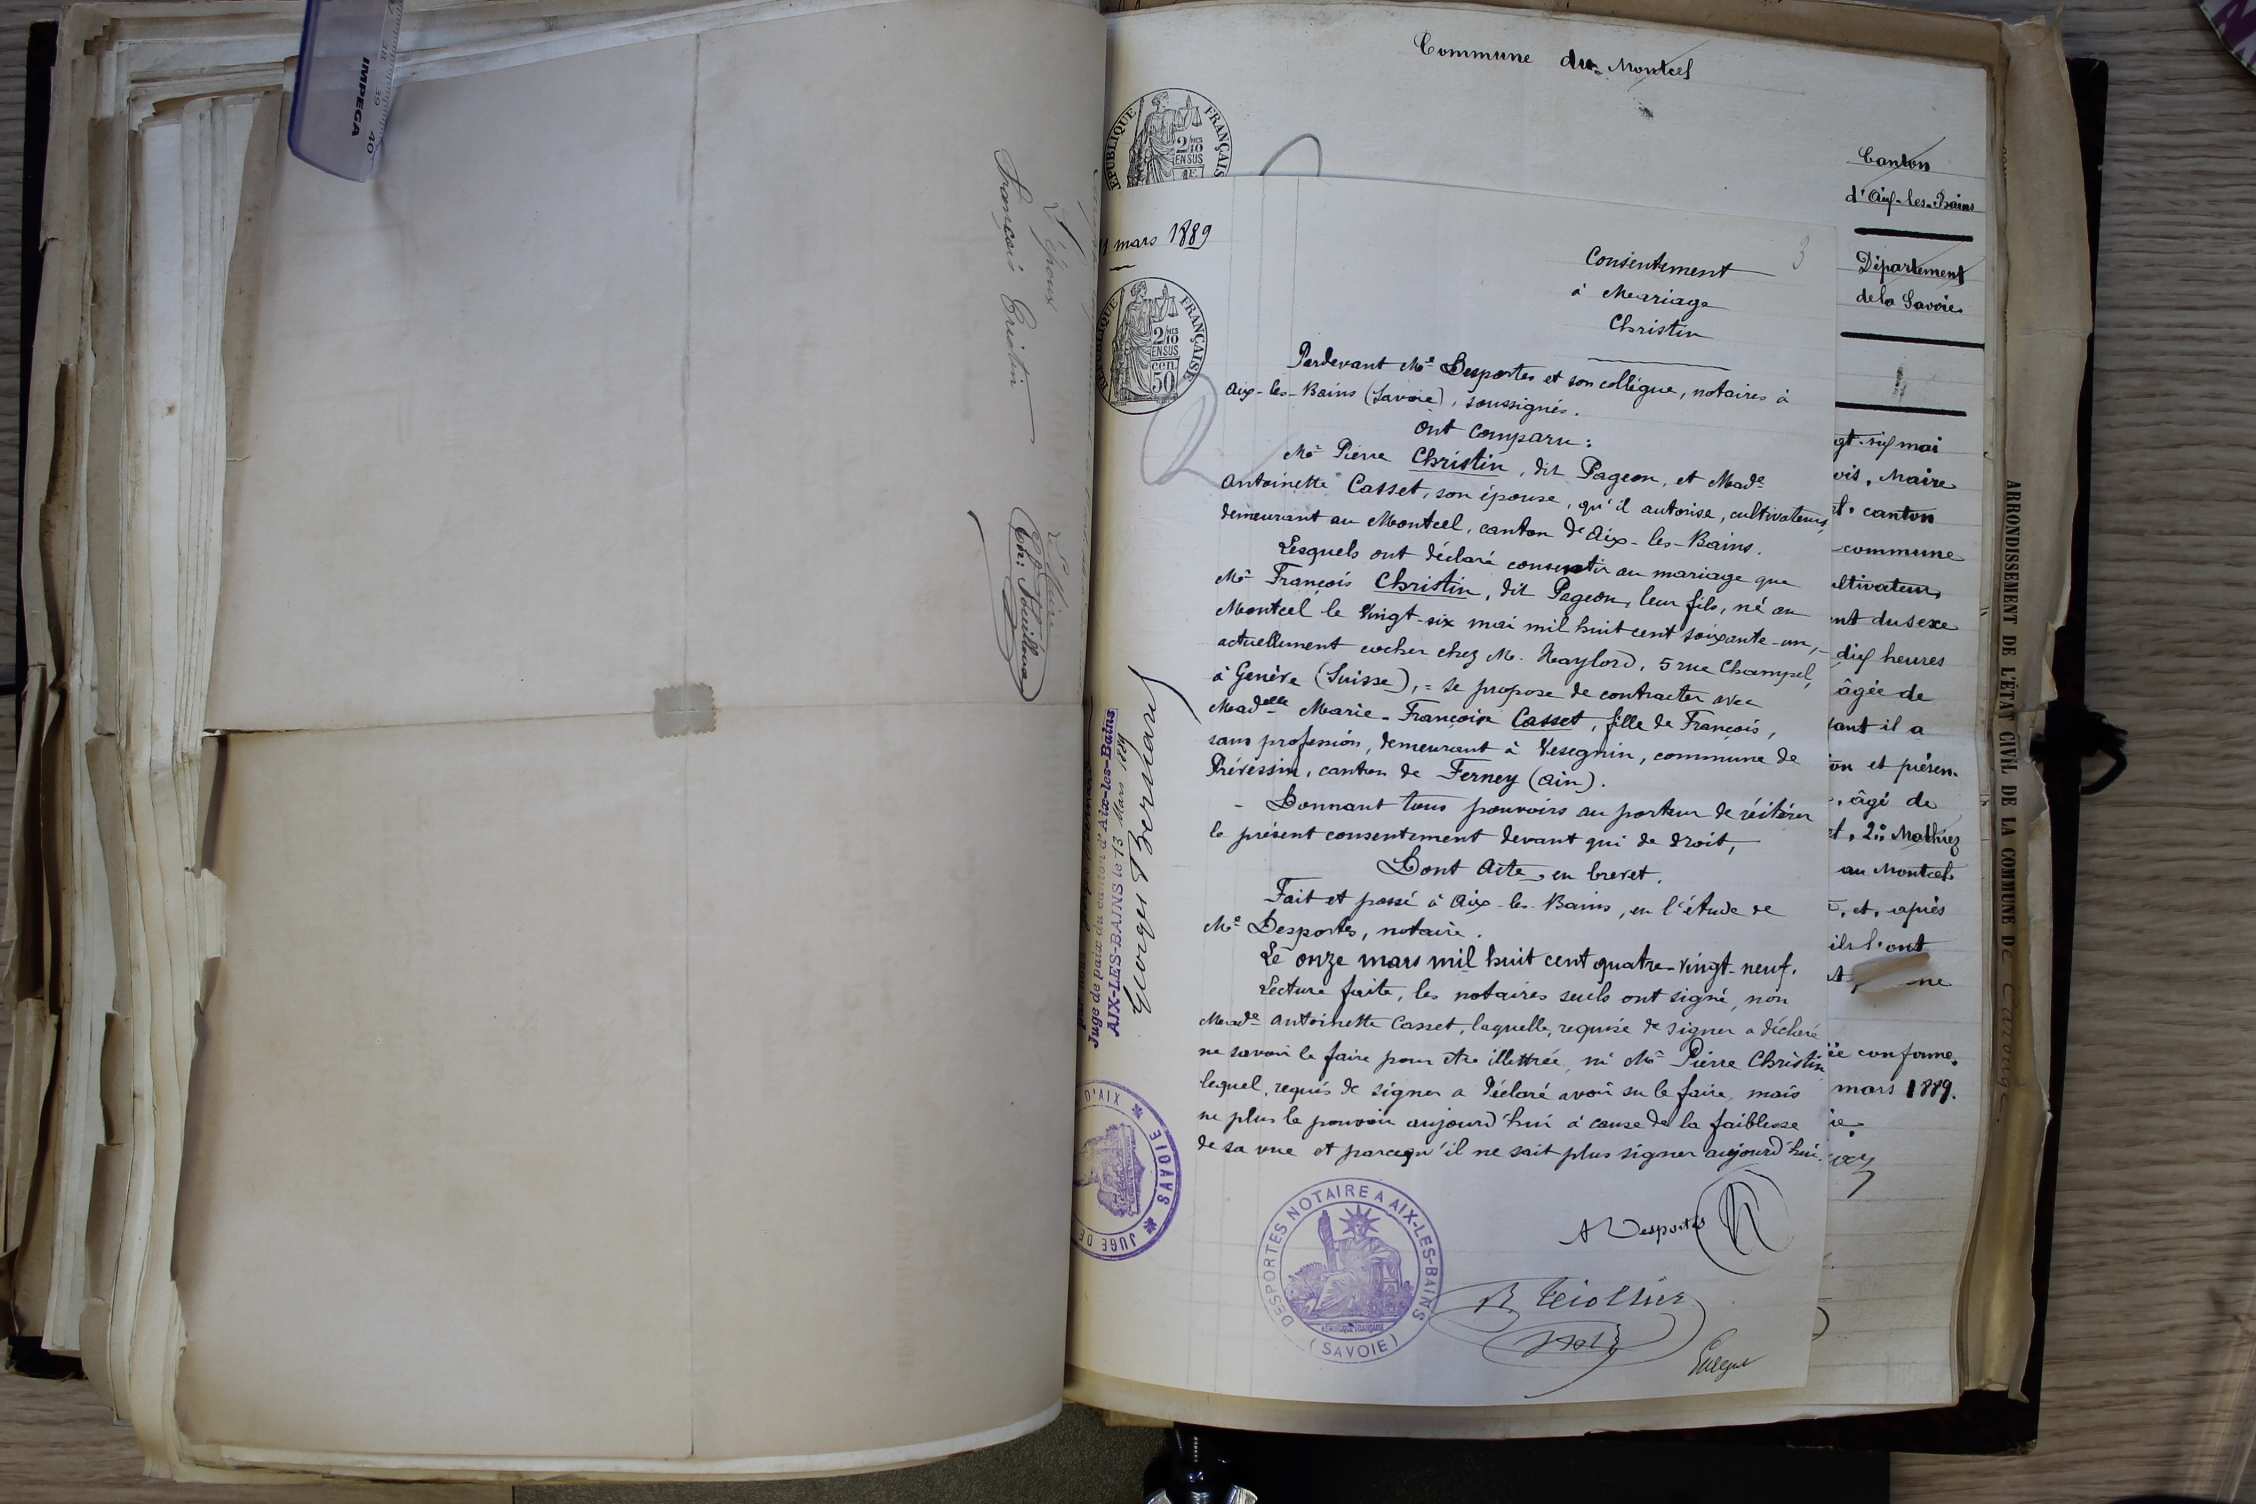 IMPEGA
39
40
L'époux
François Cristin
Le Maire
Commune du Montcel
RÉPUBLIQUE FRANÇAISE
2/10
EN SUS
mars 1889
RÉPUBLIQUE FRANÇAISE
2/10
EN SUS
cen.
50
3
Consentement
à Mariage
Christin
Pardevant Me Desportes et son collègue, notaires à
Aix-les-Bains (Savoie), soussignés.
Ont comparu:
Mr Pierre Christin, dit Pageon, et Made
Antoinette Casset, son épouse, qu'il autorise, cultivateurs,
demeurant au Montcel, canton d'Aix-les-Bains.
Lesquels ont déclaré consentir au mariage que
Mr François Christin, dit Pageon, leur fils, né au
Montcel le vingt-six mai mil huit cent soixante-un,
actuellement cocher chez M. Naylord, 5 rue Champel,
à Genève (Suisse), = se propose de contracter avec
Madelle Marie-Françoise Casset, fille de François,
sans profession, demeurant à Vesegnin, commune de
Prévessin, canton de Ferney (Ain).
- Donnant tous pouvoirs au porteur de réitérer
le présent consentement devant qui de droit,
Dont Acte, en brevet.
Fait et passé à Aix-les-Bains, en l'étude de
Me Desportes, notaire.
Le onze mars mil huit cent quatre-vingt-neuf.
Lecture faite, les notaires seuls ont signé, non
Made Antoinette Casset, laquelle, requise de signer a déclaré
ne savoir le faire pour être illettrée, ni Mr Pierre Christin
lequel, requis de signer a déclaré avoir su le faire, mais
ne plus le pouvoir aujourd'hui à cause de la faiblesse
de sa vue et parcequ'il ne sait plus signer aujourd'hui.
A Desportes
DESPORTES NOTAIRE A AIX-LES-BAINS
(SAVOIE)
Juge de paix du canton d'Aix-les-Bains
AIX-LES-BAINS le 13 Mars 1889
Georges Bershard
D'AIX * SAVOIE * JUGE DE
Canton
d'Aix-les-Bains
Département
de la Savoie
gt-six mai
vis, Maire
canton
commune
ultivateur,
ent du sexe
dix heures
âgée de
sant il a
on et présen-
, âgé de
et, 2°: Mathiez
au Montcel
, et, après
ils l'ont
ne
ée conforme.
mars 1889.
ARRONDISSEMENT DE L'ÉTAT CIVIL DE LA COMMUNE DE Carouge